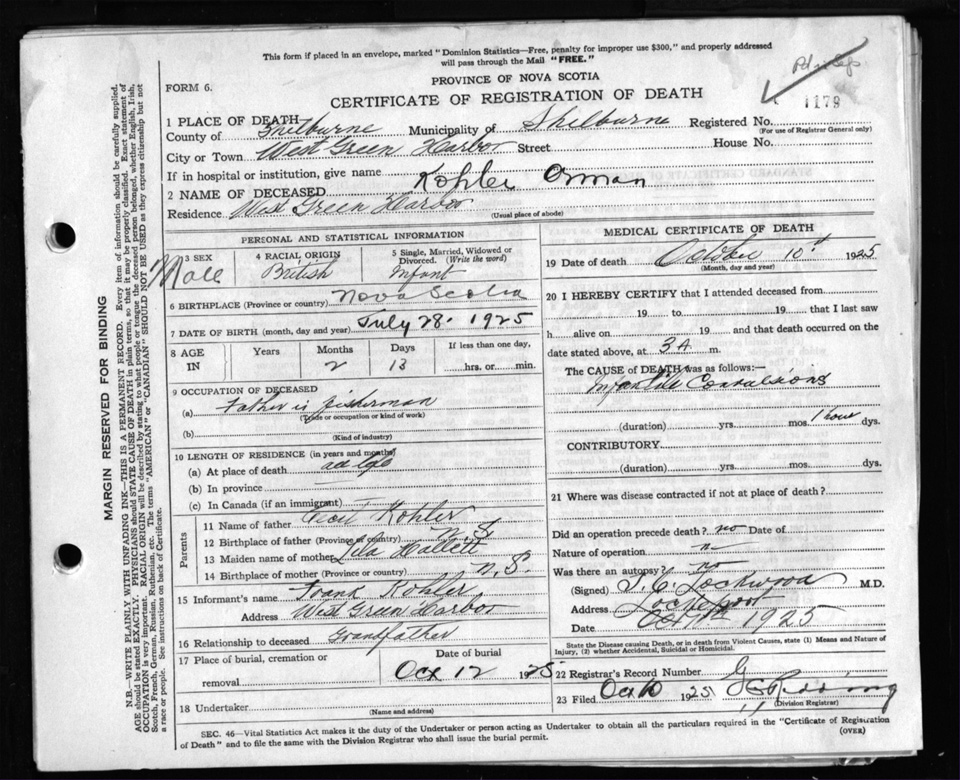 This form if placed in an envelope, marked "Dominion Statistics—Free, penalty for improper use $300," and properly addressed
will pass through the Mail "FREE."
PROVINCE OF NOVA SCOTIA
FORM 6.
CERTIFICATE OF REGISTRATION OF DEATH
1179
1 PLACE OF DEATH
County of Shelburne Municipality of Shelburne Registered No.
(For use of Registrar General only)
City or Town West Green Harbor Street House No.
If in hospital or institution, give name
2 NAME OF DECEASED Kohler Orman
Residence West Green Harbor
(Usual place of abode)
PERSONAL AND STATISTICAL INFORMATION
3 SEX Male
4 RACIAL ORIGIN British
5 Single, Married, Widowed or Divorced. (Write the word) Infant
6 BIRTHPLACE (Province or country) Nova Scotia
7 DATE OF BIRTH (month, day and year) July 28. 1925
8 AGE IN Years Months Days If less than one day,
2 13 hrs. or min.
9 OCCUPATION OF DECEASED
(a) Father is fisherman
(Trade or occupation or kind of work)
(b)
(Kind of industry)
10 LENGTH OF RESIDENCE (in years and months)
(a) At place of death
(b) In province
(c) In Canada (if an immigrant)
Parents
11 Name of father Cecil Kohler
12 Birthplace of father (Province or country) N S
13 Maiden name of mother Lila Hallett
14 Birthplace of mother (Province or country) N. S.
15 Informant's name Frank Kohler
Address West Green Harbor
16 Relationship to deceased Grandfather
17 Place of burial, cremation or removal
Date of burial
Oct 12 1925
18 Undertaker
(Name and address)
MEDICAL CERTIFICATE OF DEATH
19 Date of death October 10th 1925
(Month, day and year)
20 I HEREBY CERTIFY that I attended deceased from
19 to 19 that I last saw
h alive on 19 and that death occurred on the
date stated above, at 3 A m.
The CAUSE of DEATH was as follows:—
Infantile Convulsions
(duration) yrs. mos. 1 hour dys.
CONTRIBUTORY
(duration) yrs. mos. dys.
21 Where was disease contracted if not at place of death?
Did an operation precede death? no Date of
Nature of operation
Was there an autopsy? no
(Signed) J. C. Lockwood M.D.
Address Lockeport
Date Oct 1925
State the Disease causing Death, or in death from Violent Causes, state (1) Means and Nature of
Injury, (2) whether Accidental, Suicidal or Homicidal.
22 Registrar's Record Number
23 Filed Oct 10 1925
(Division Registrar)
SEC. 46—Vital Statistics Act makes it the duty of the Undertaker or person acting as Undertaker to obtain all the particulars required in the "Certificate of Registration
of Death" and to file the same with the Division Registrar who shall issue the burial permit.
(OVER)
MARGIN RESERVED FOR BINDING
N.B.—WRITE PLAINLY WITH UNFADING INK—THIS IS A PERMANENT RECORD. Every item of information should be carefully supplied.
AGE should be stated EXACTLY. PHYSICIANS should STATE CAUSE OF DEATH in plain terms, so that it may be properly classified. Exact statement of
OCCUPATION is very important. RACIAL ORIGIN will be described by stating to what people or tongue the deceased person belonged, whether English, Irish,
Scotch, French, German, Russian, Ruthenian, etc. The terms "AMERICAN" or "CANADIAN" SHOULD NOT BE USED as they express citizenship but not
a race or people. See instructions on back of Certificate.